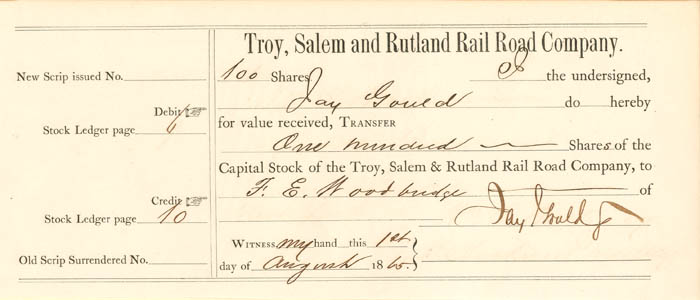 Troy, Salem and Rutland Rail Road Company.
New Scrip issued No.
100 Shares I the undersigned,
Jay Gould do hereby
Debit
Stock Ledger page 6
for value received, TRANSFER
One hundred Shares of the
Capital Stock of the Troy, Salem & Rutland Rail Road Company, to
F. E. Woodbridge of
Credit
Stock Ledger page 10
Jay Gould
WITNESS my hand this 1st
Old Scrip Surrendered No.
day of August 1865.